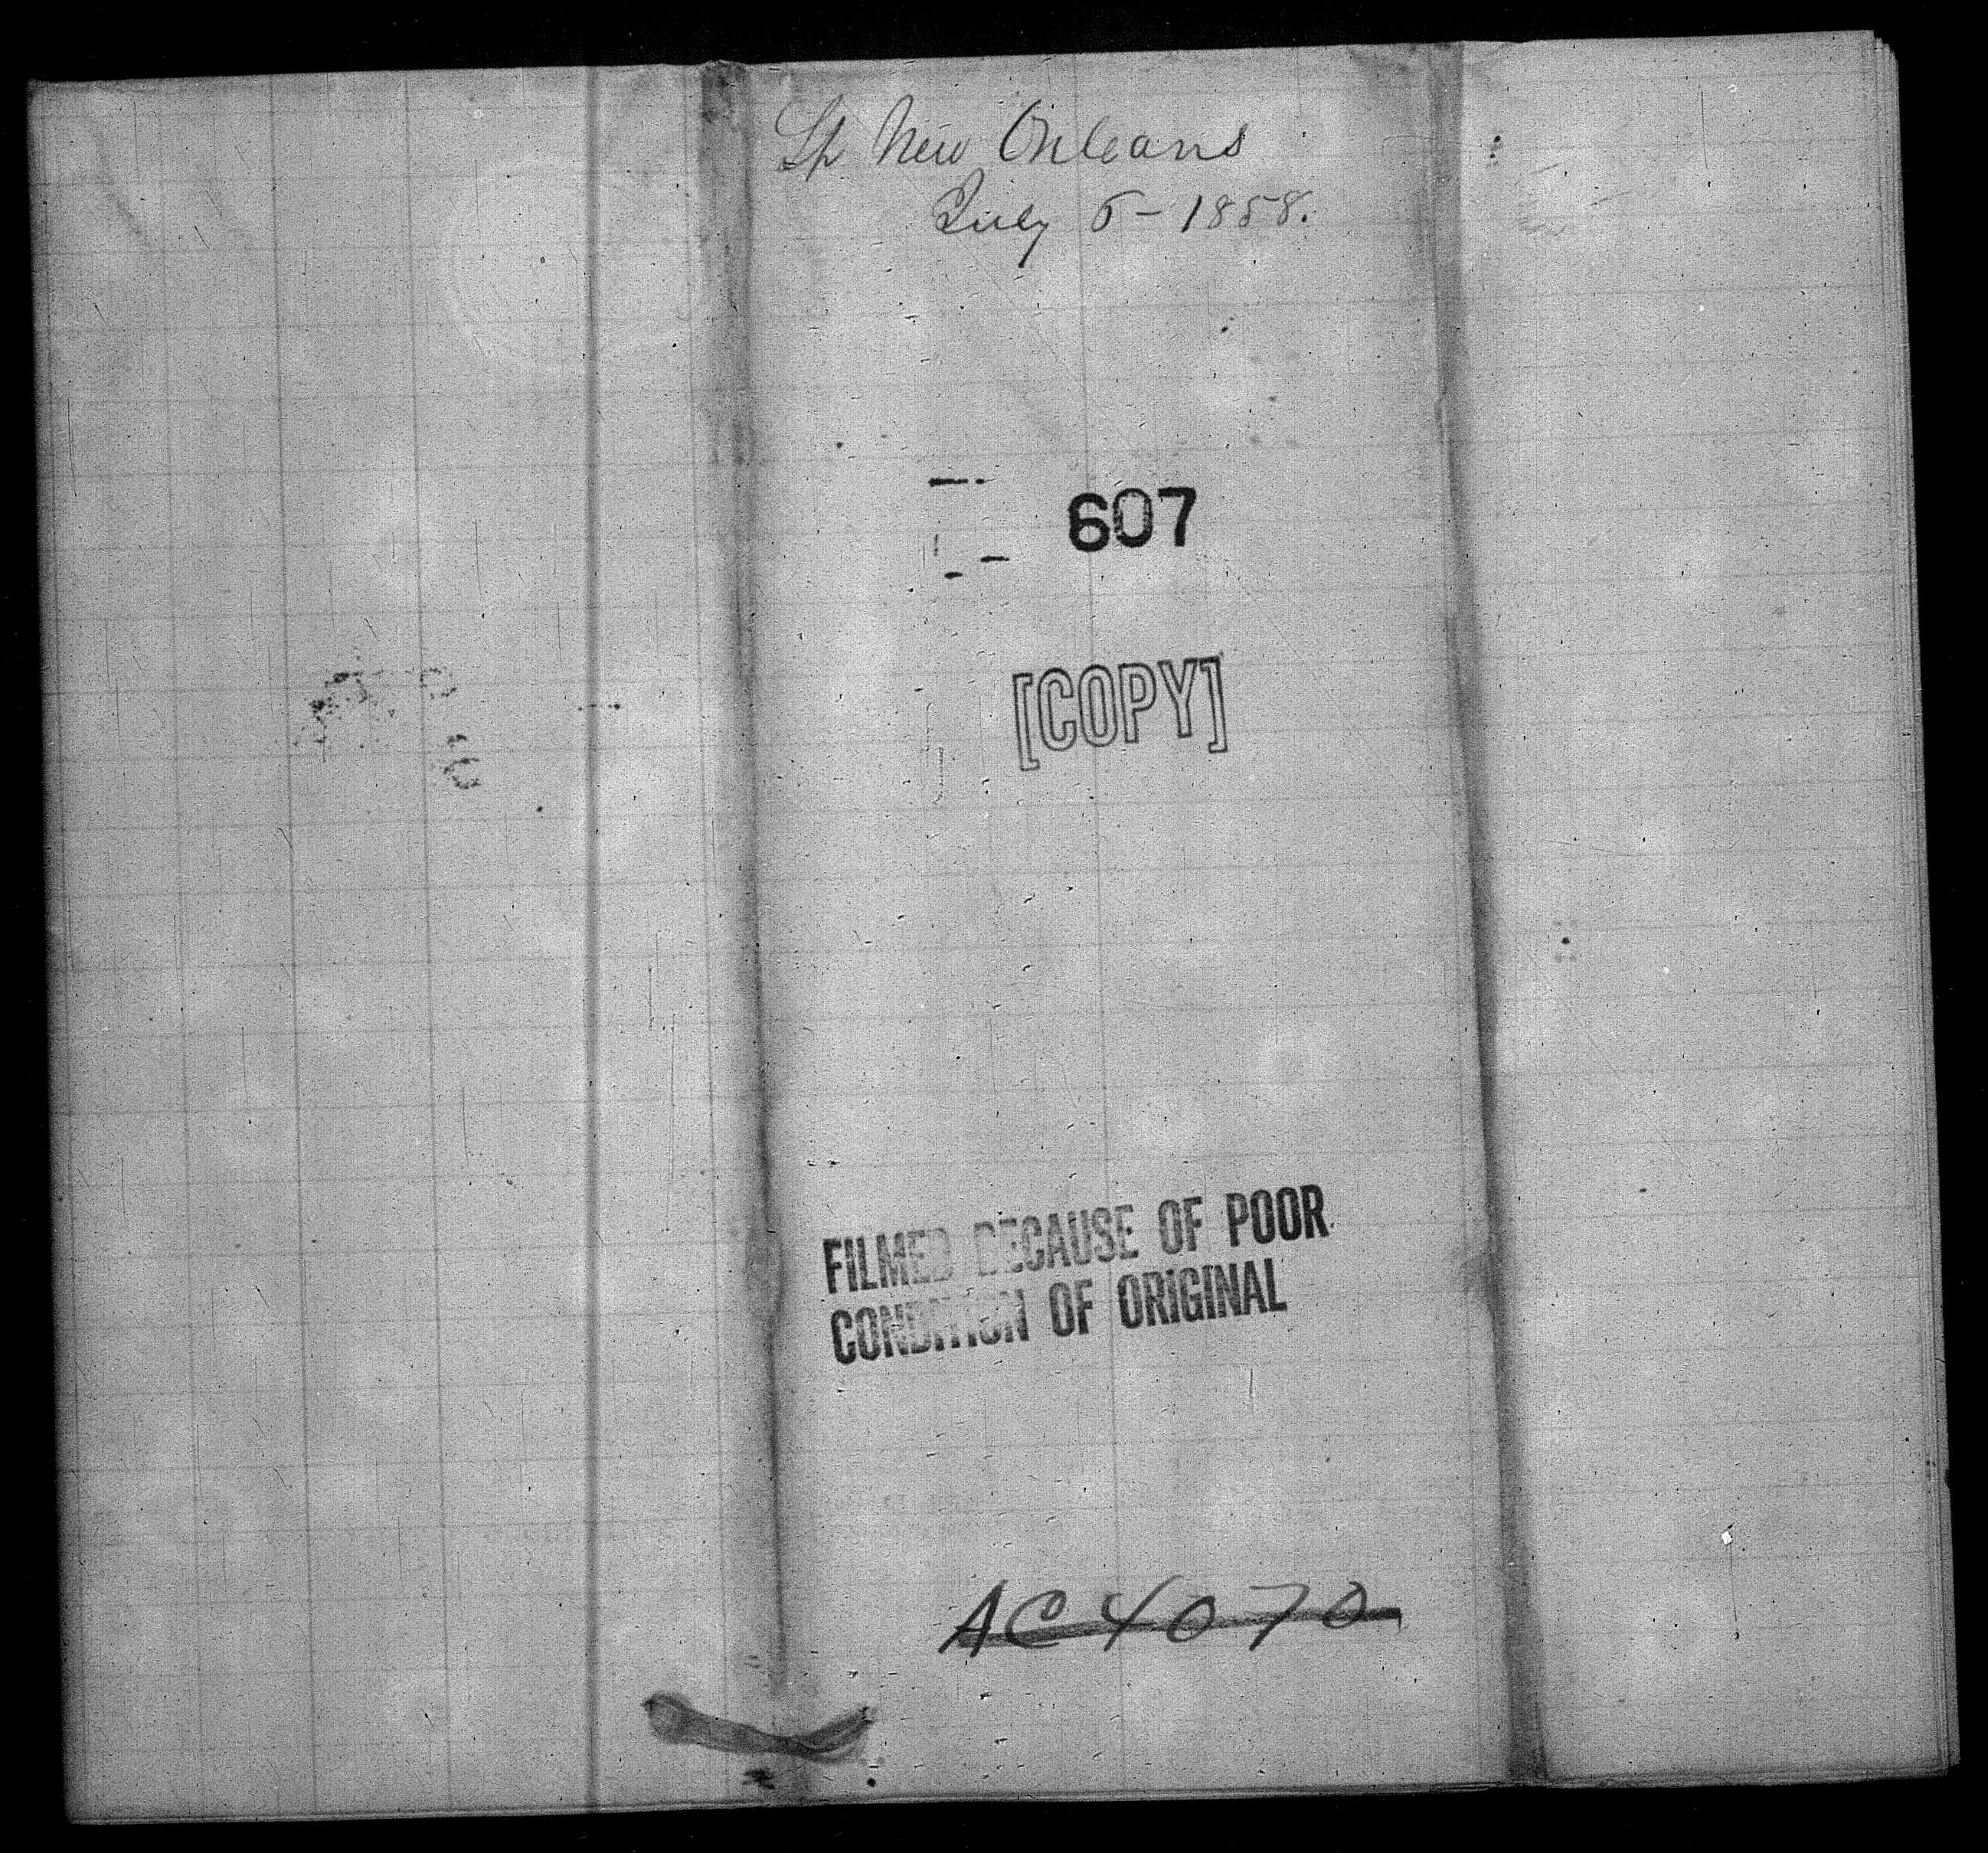 Sp New Orleans
July 6 - 1858.
607
[COPY]
FILMED BECAUSE OF POOR
CONDITION OF ORIGINAL
AC 4070